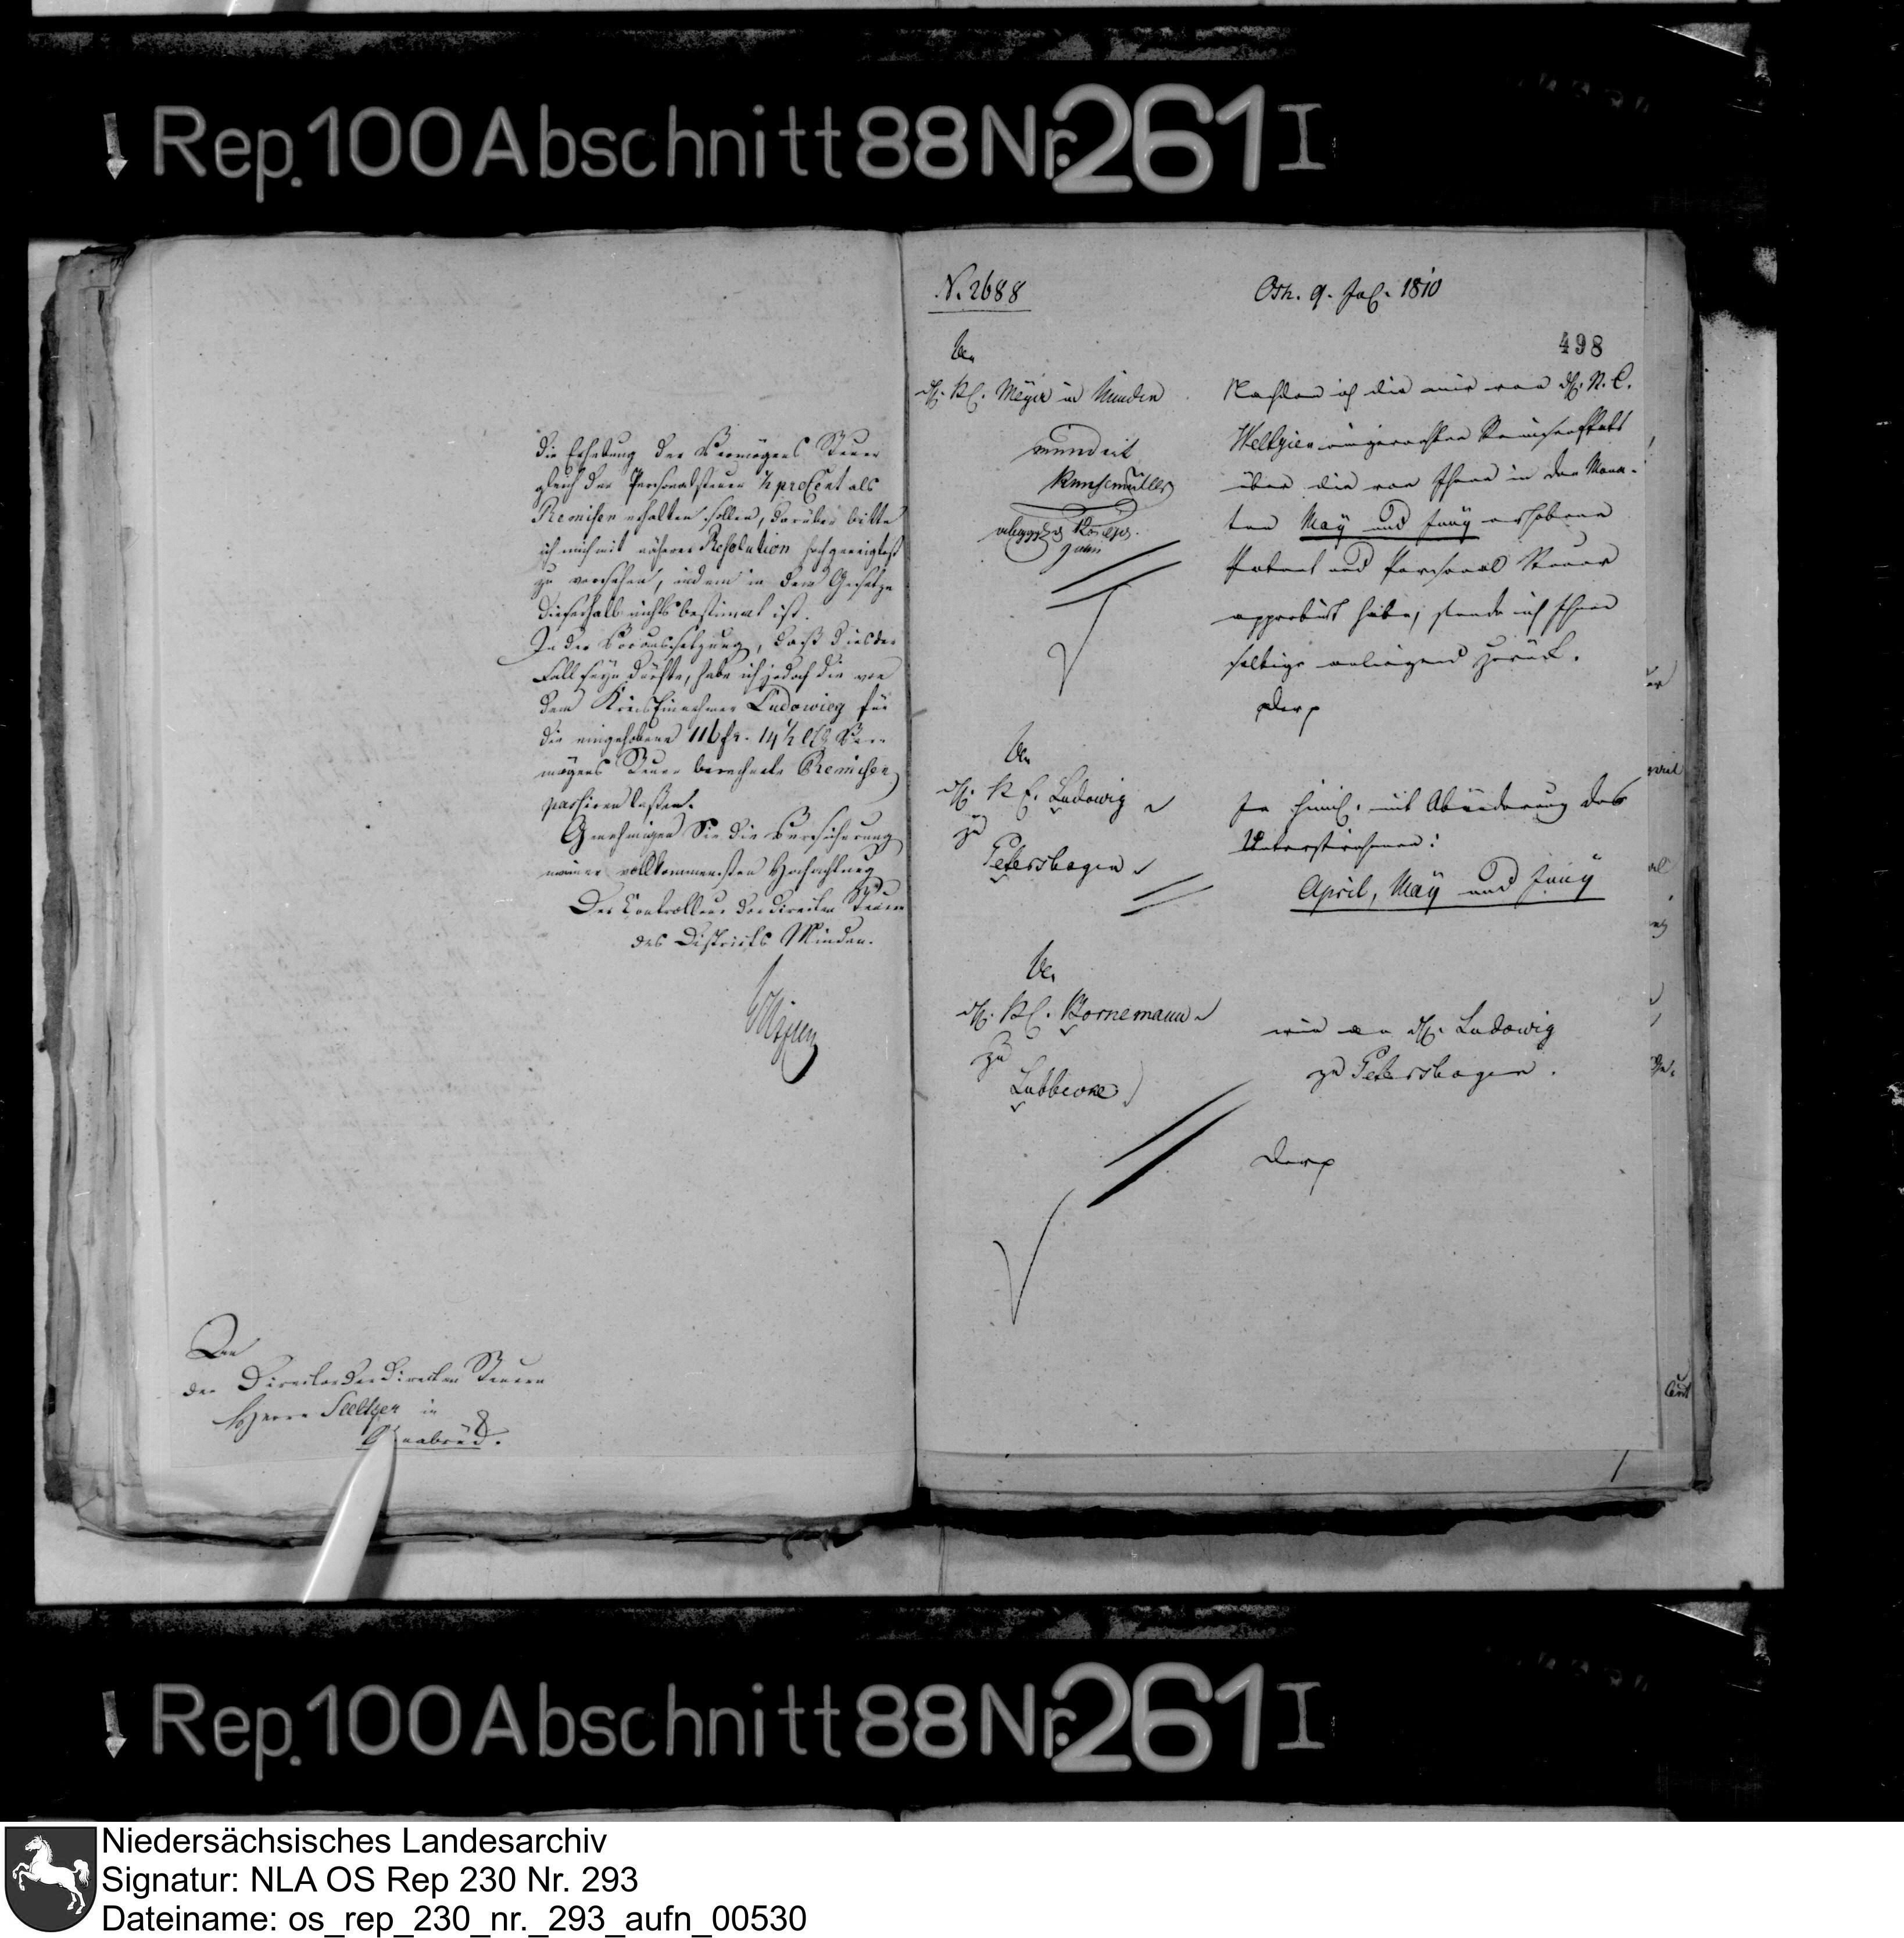 Rep. 100 Abschnitt 88 Nr. 261 I
die Erhebung der Vermögens Steuer
gleich der Personalsteuer ½ proCent als
Remisen erhalten sollen, darüber bitte
ich mich mit näherer Resolution hochgeneigtest
zu versehen, indem in dem Gesetze
dieserhalb nichts bestimmt ist.
In der Voraussetzung, daß dieß der
Fall seyn dürfte, habe ich jedoch die von
dem Kreis Einnehmer Ludowieg für
die eingehobene 116 fr. 14½ Ver-
mögens Steuer berechnete Remisen
passiren laßen.
Genehmigen Sie die Versicherung
meiner vollkommensten Hochachtung
Der Controlleur der directen Steuern
des Districts Minden.
An
den Director der directen Steuern
Herrn in
Osnabrück.
N. 2688
Osn. 9. Jul. 1810
498
An
H. KE. Meyer in Minden
mundirt
Nachdem ich die mir von H. K. C.
eingereichten
über die von Ihnen in den Mona-
ten May und Juny erhobene
Patent und Personal Steuer
approbirt habe, sende ich Ihnen
selbige anliegend zurück.
An
H. K E. Ludowig
zu
Petershagen
mit Abänderung des
Unterstrichenen:
April, May und Juny
An
H. KE. Bornemann
zu
Lübbecke
wie an H. Ludowig
zu Petershagen.
Rep. 100 Abschnitt 88 Nr. 261 I
Niedersächsisches Landesarchiv
Signatur: NLA OS Rep 230 Nr. 293
Dateiname: os_rep_230_nr._293_aufn_00530